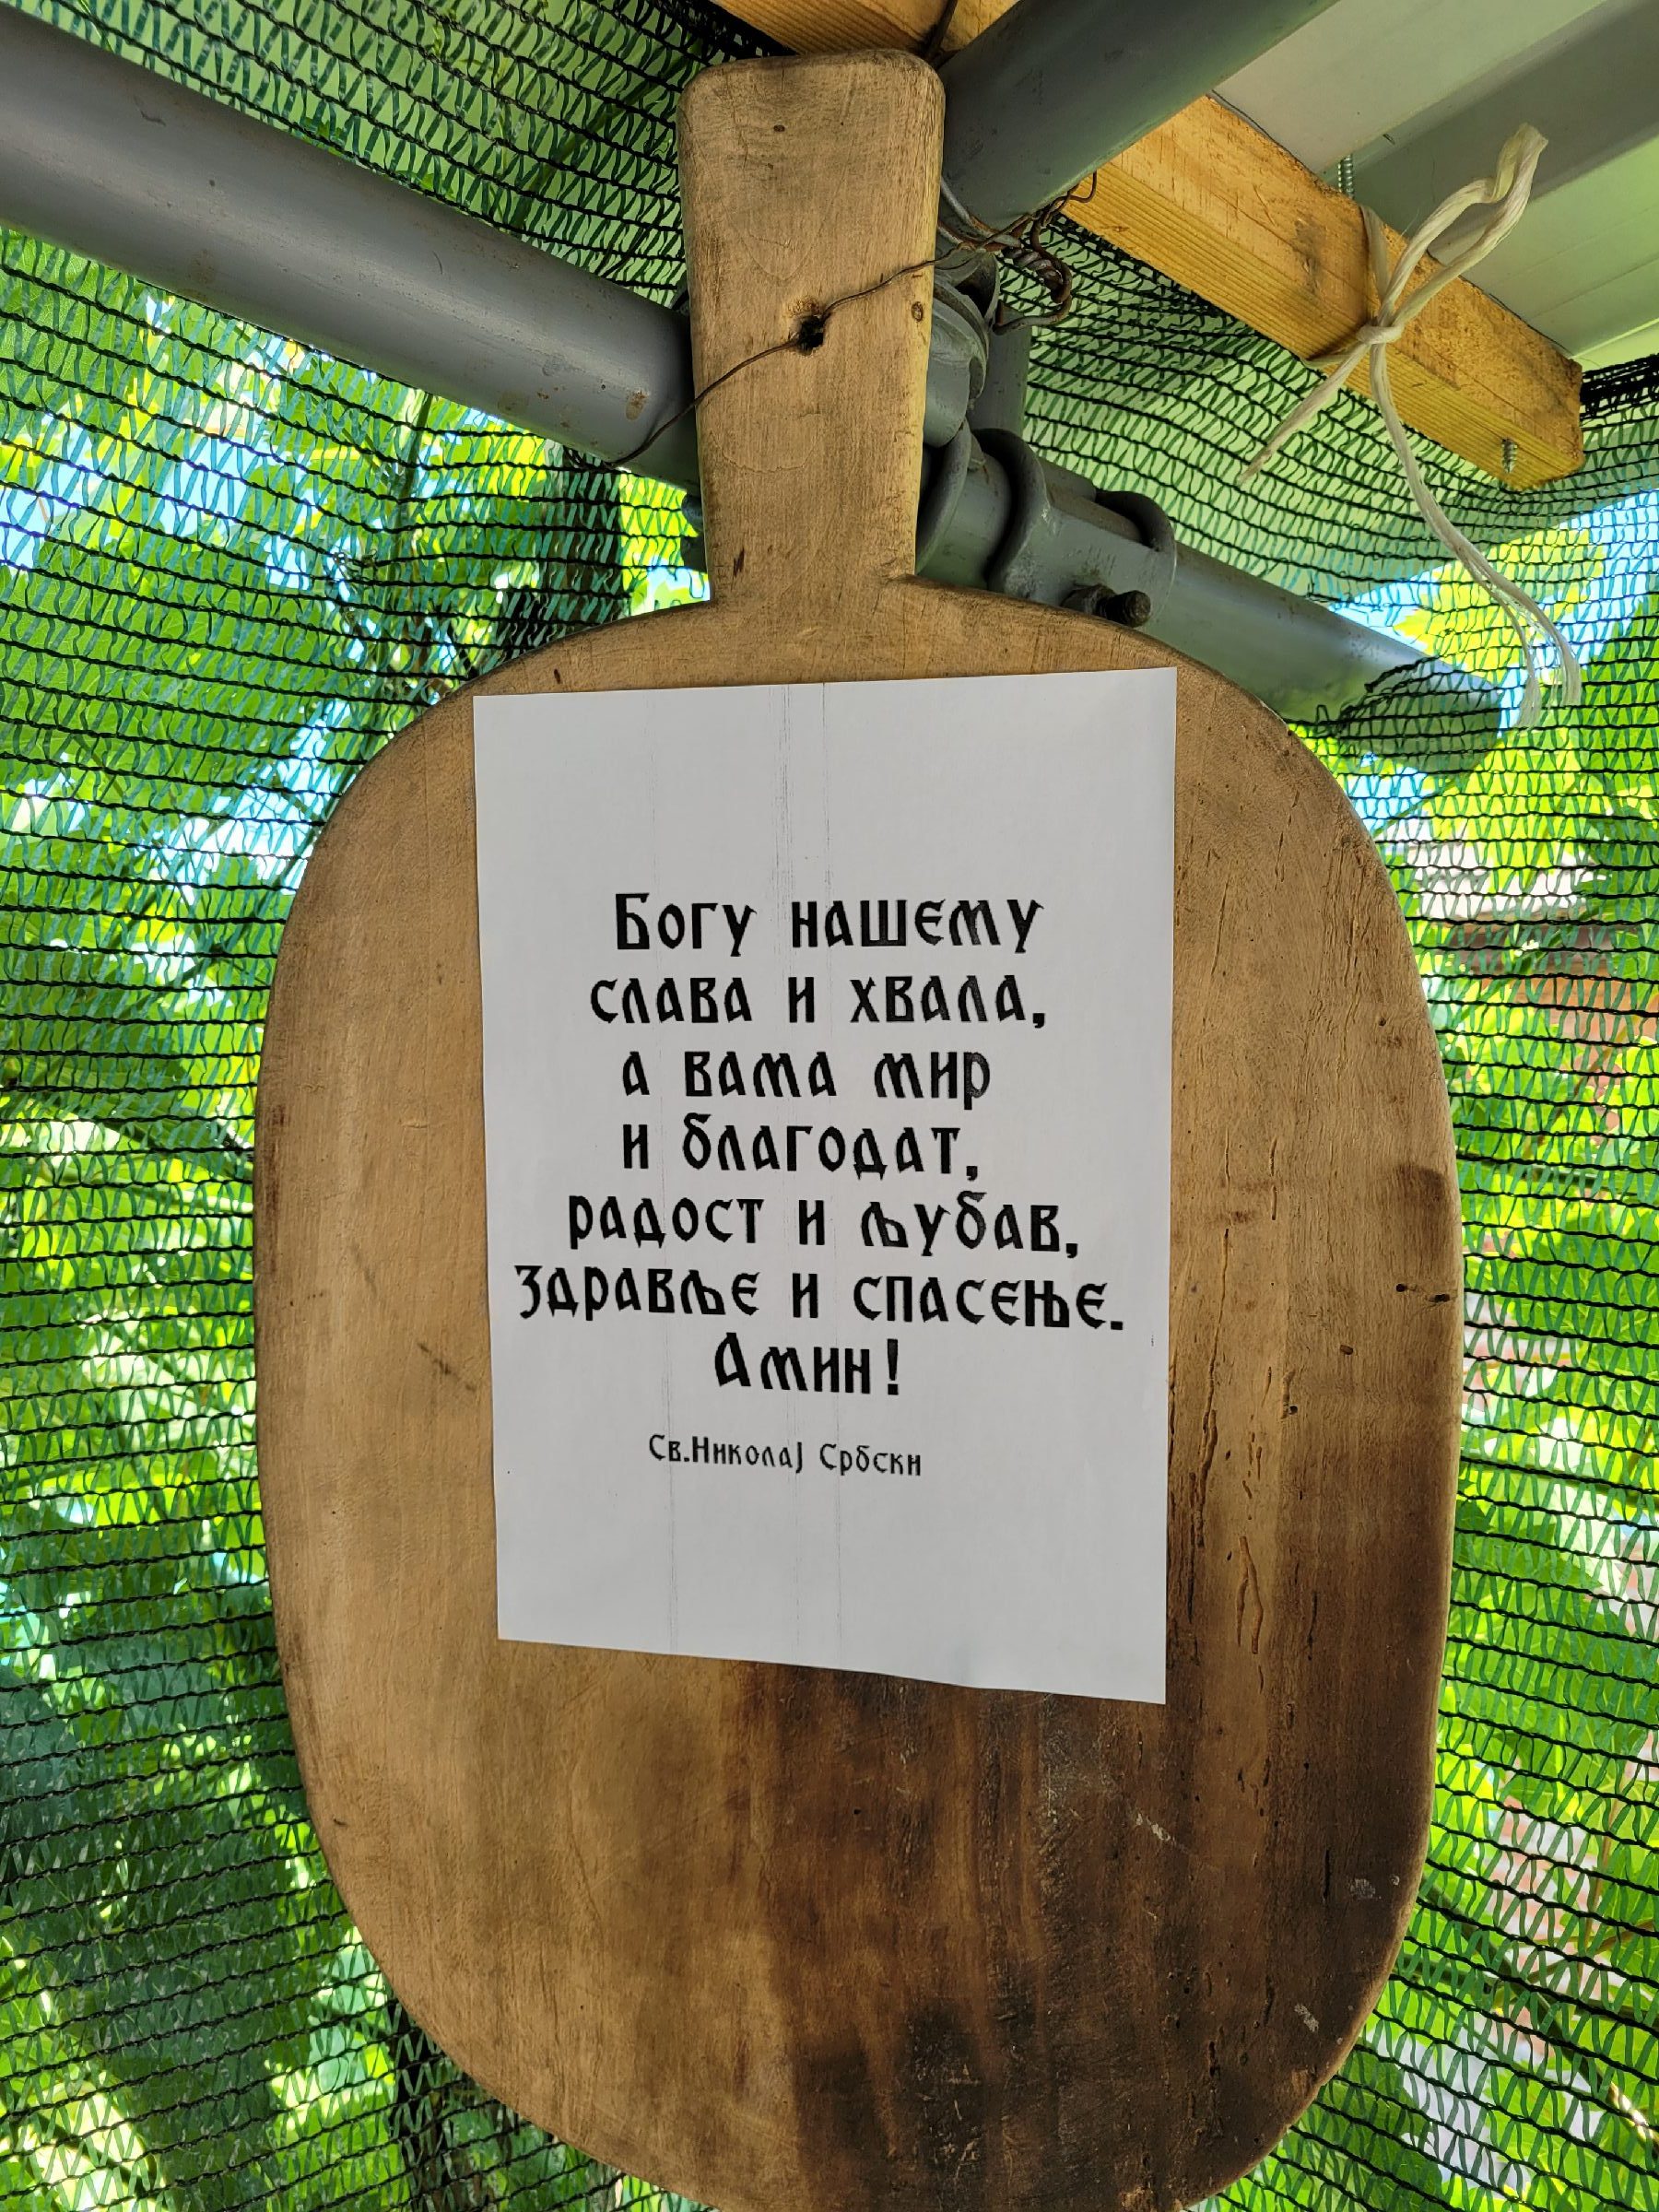 Богу нашему
слава и хвала,
а вама мир
и благодат,
радост и љубав,
здравље и спасење.
Амин!
Св.Николај Србски